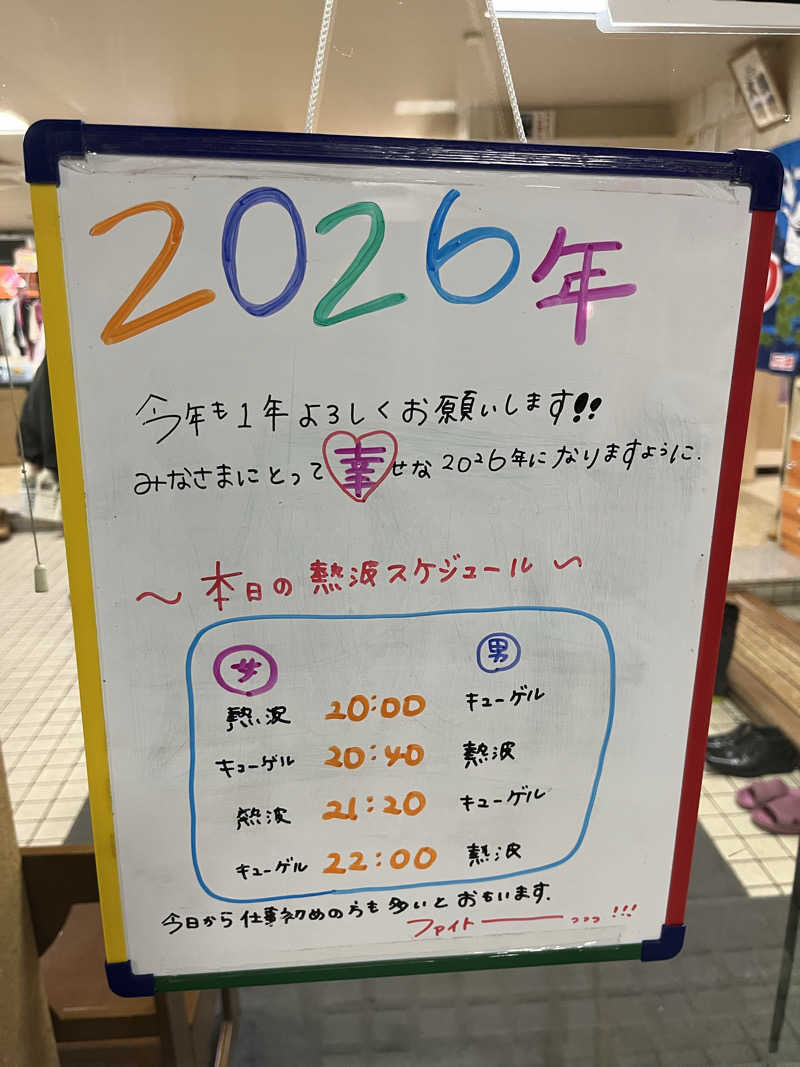 2026年
今年も1年よろしくお願いします!!
みなさまにとって幸せな2026年になりますように.
〜 本日の熱波スケジュール 〜
女 男
熱波 20:00 キューゲル
キューゲル 20:40 熱波
熱波 21:20 キューゲル
キューゲル 22:00 熱波
今日から仕事初めの方も多いとおもいます.
ファイトーーーっっっ!!!